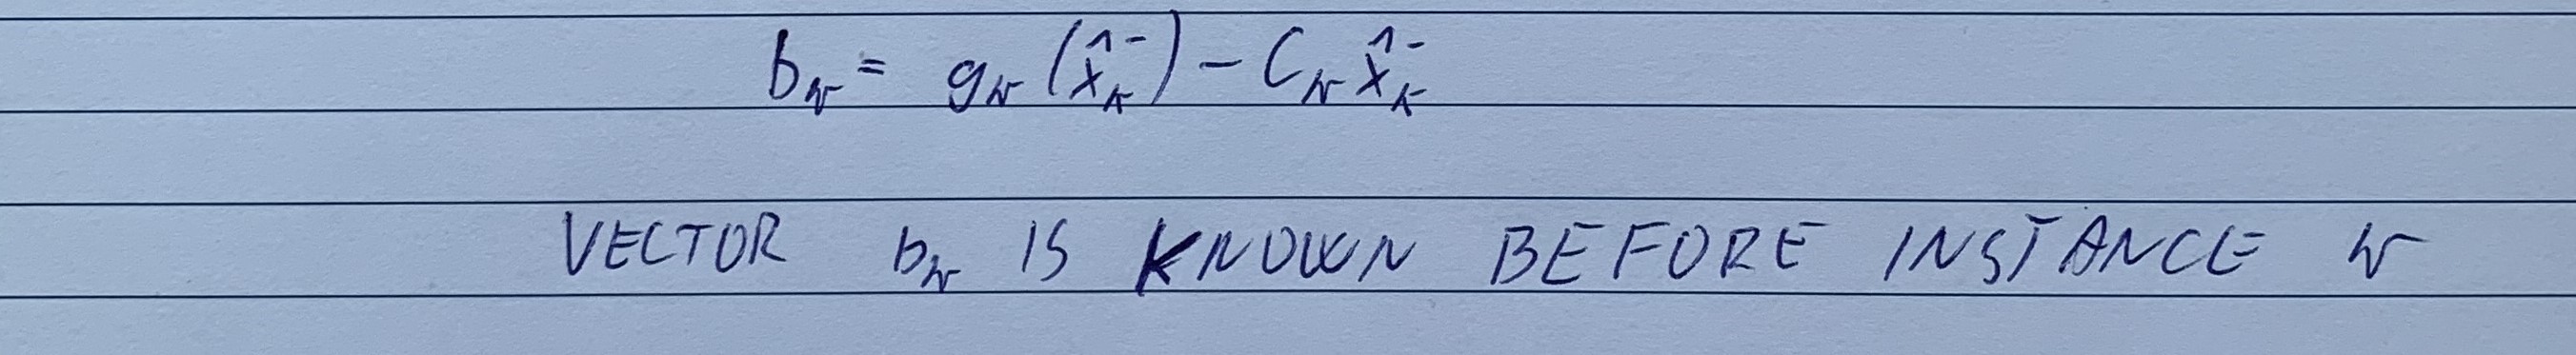 bₖ = gₖ(x̂ₖ⁻) - Cₖ x̂ₖ⁻
VECTOR bₖ IS KNOWN BEFORE INSTANCE k